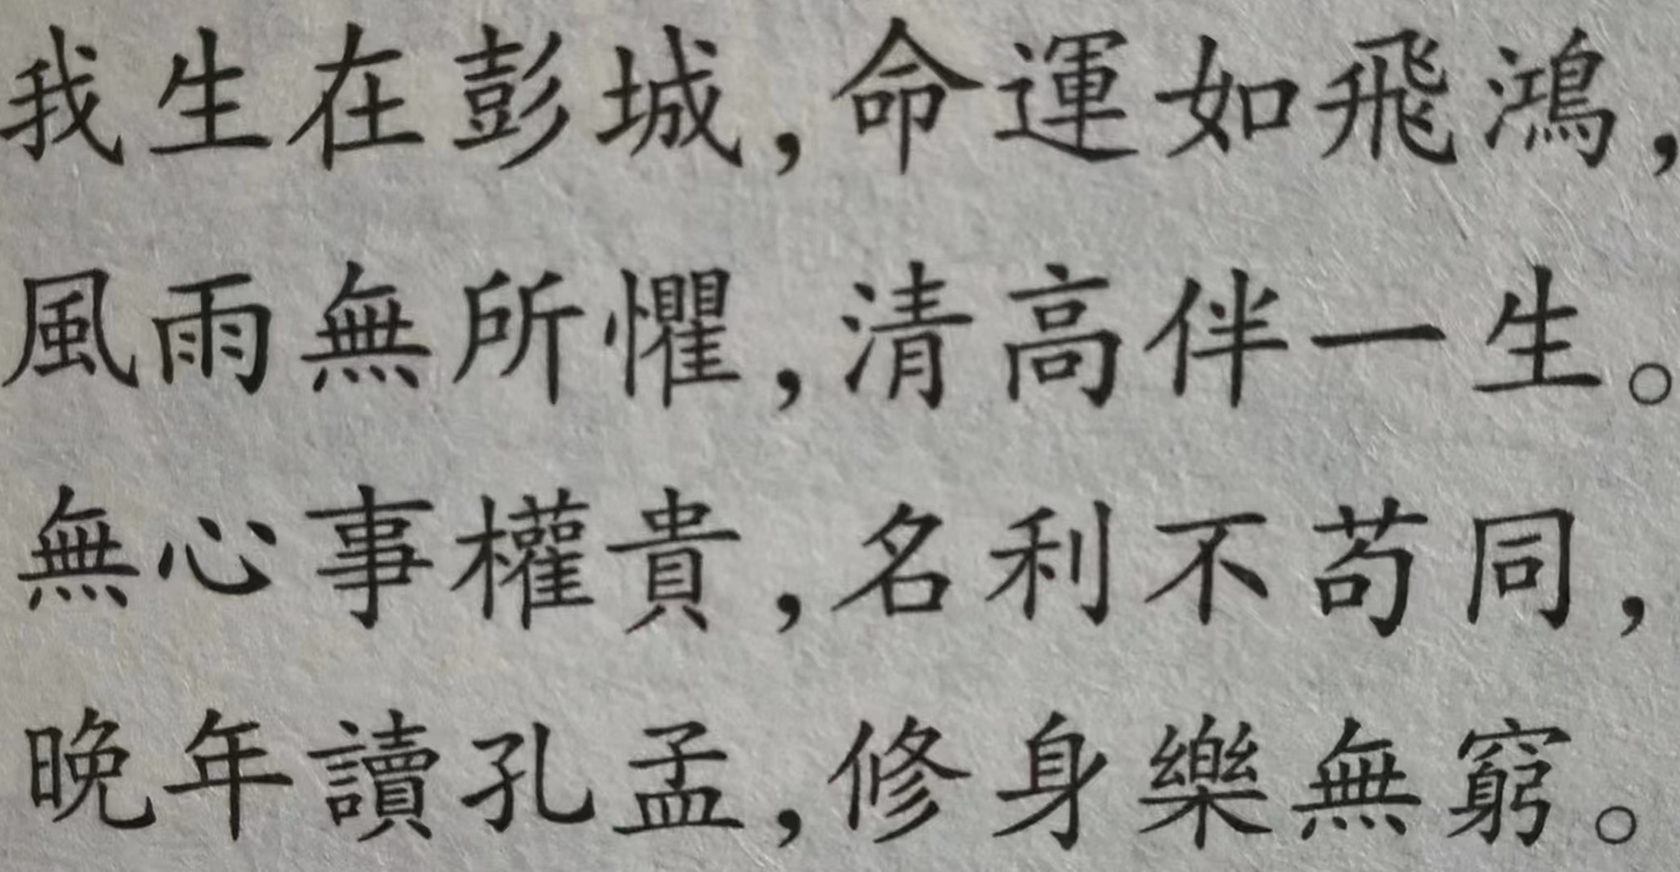 我生在彭城,命運如飛鴻,
風雨無所懼,清高伴一生。
無心事權貴,名利不苟同,
晚年讀孔孟,修身樂無窮。